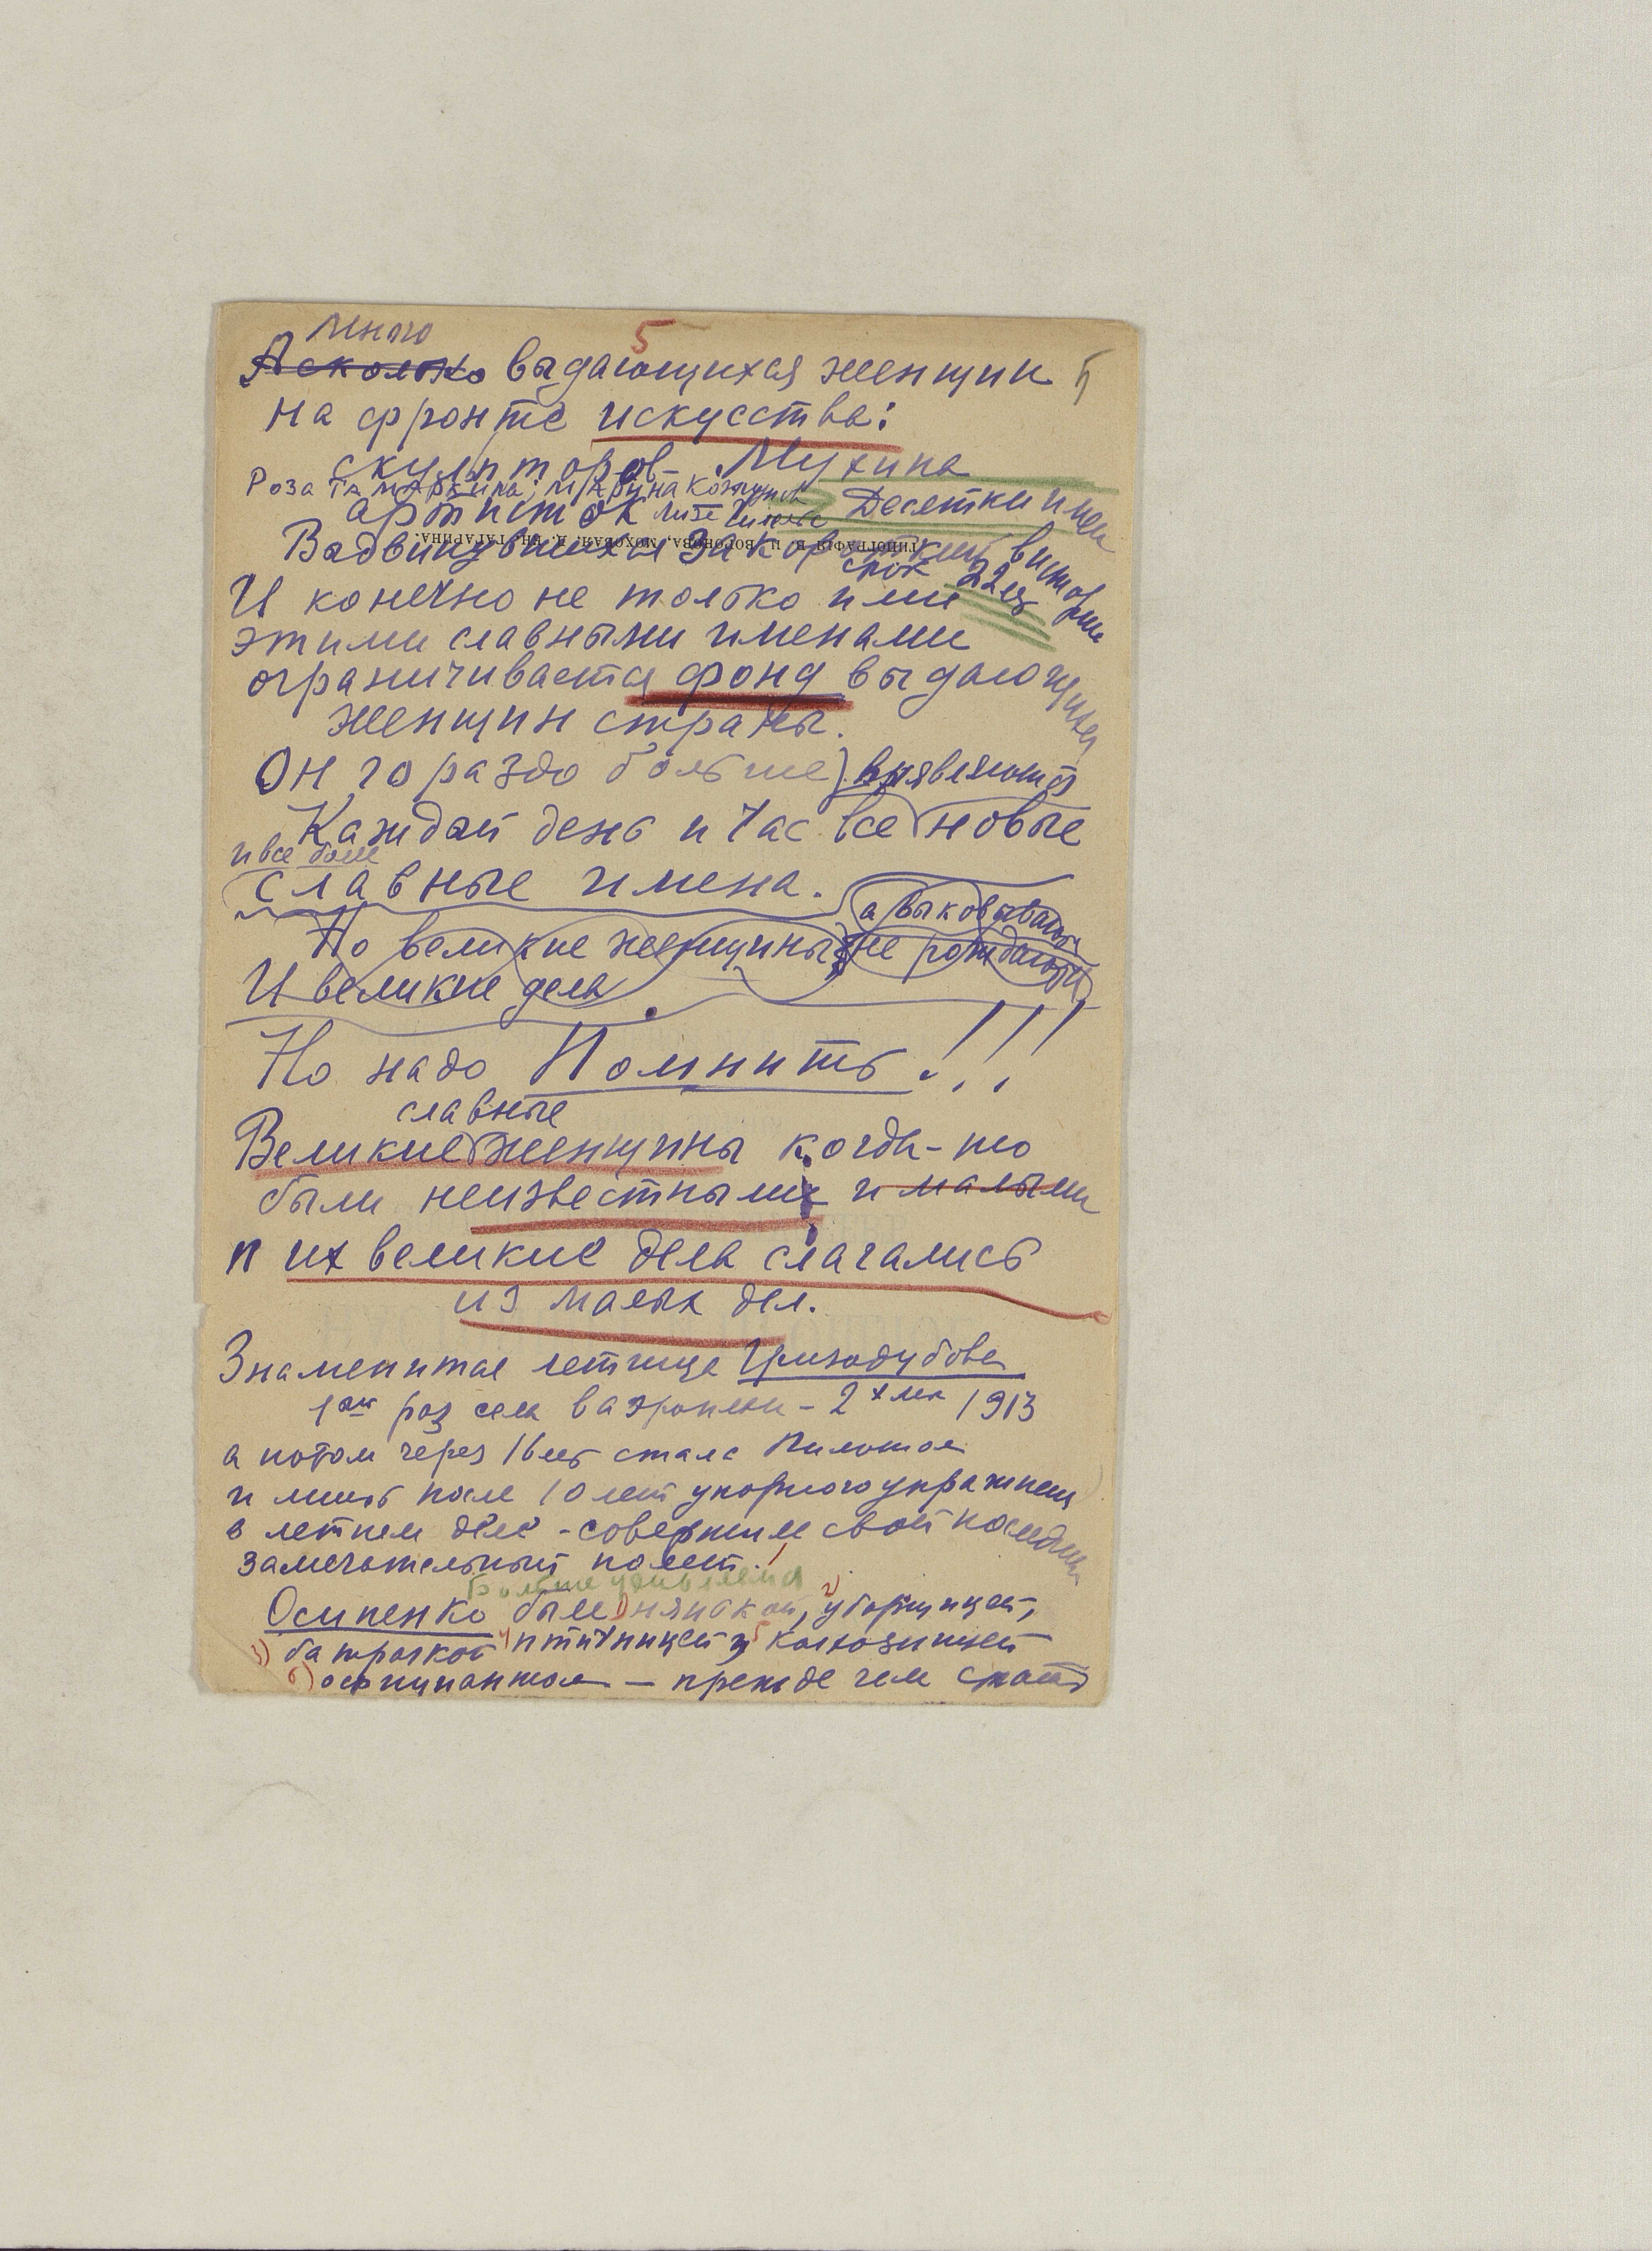 5
Много
А сколько выдающихся женщин 5
на фронте искусства:
скульпторов – Мухина
Роза Тамаркина, Марина Козолупова
артисток Лиза Гилельс Десятки имен
Выдвинувшихся за короткий
срок 22 г. в истории
ТИПОГРАФІЯ В. И. ВОРОНОВА, МОХОВАЯ, Д. КН. ГАГАРИНА.
И конечно не только ими
этими славными именами
ограничивается фонд выдающихся
женщин страны.
Он гораздо больше) выявляются
Каждый день и час все новые
и все более
славные имена.
а выковываются
Но великие женщины не рождаются
И великие дела
Но надо Помнить!!!
славные
Великие женщины когда-то
были неизвестными и малыми
и их великие дела слагались
из малых дел.
Знаменитая летчица Гризодубова
1ый раз села в аэроплан – 2х лет 1913
а потом через 16 лет стала Пилотом
и лишь после 10 лет упорного упражнения
в летном деле – совершила свой последний
замечательный полет!
Больше удивляемся
Осипенко была 1) нянькой, 2) уборщицей,
3) батрачкой 4) птичницей 5 колхозницей
6) официанткой – прежде чем стать